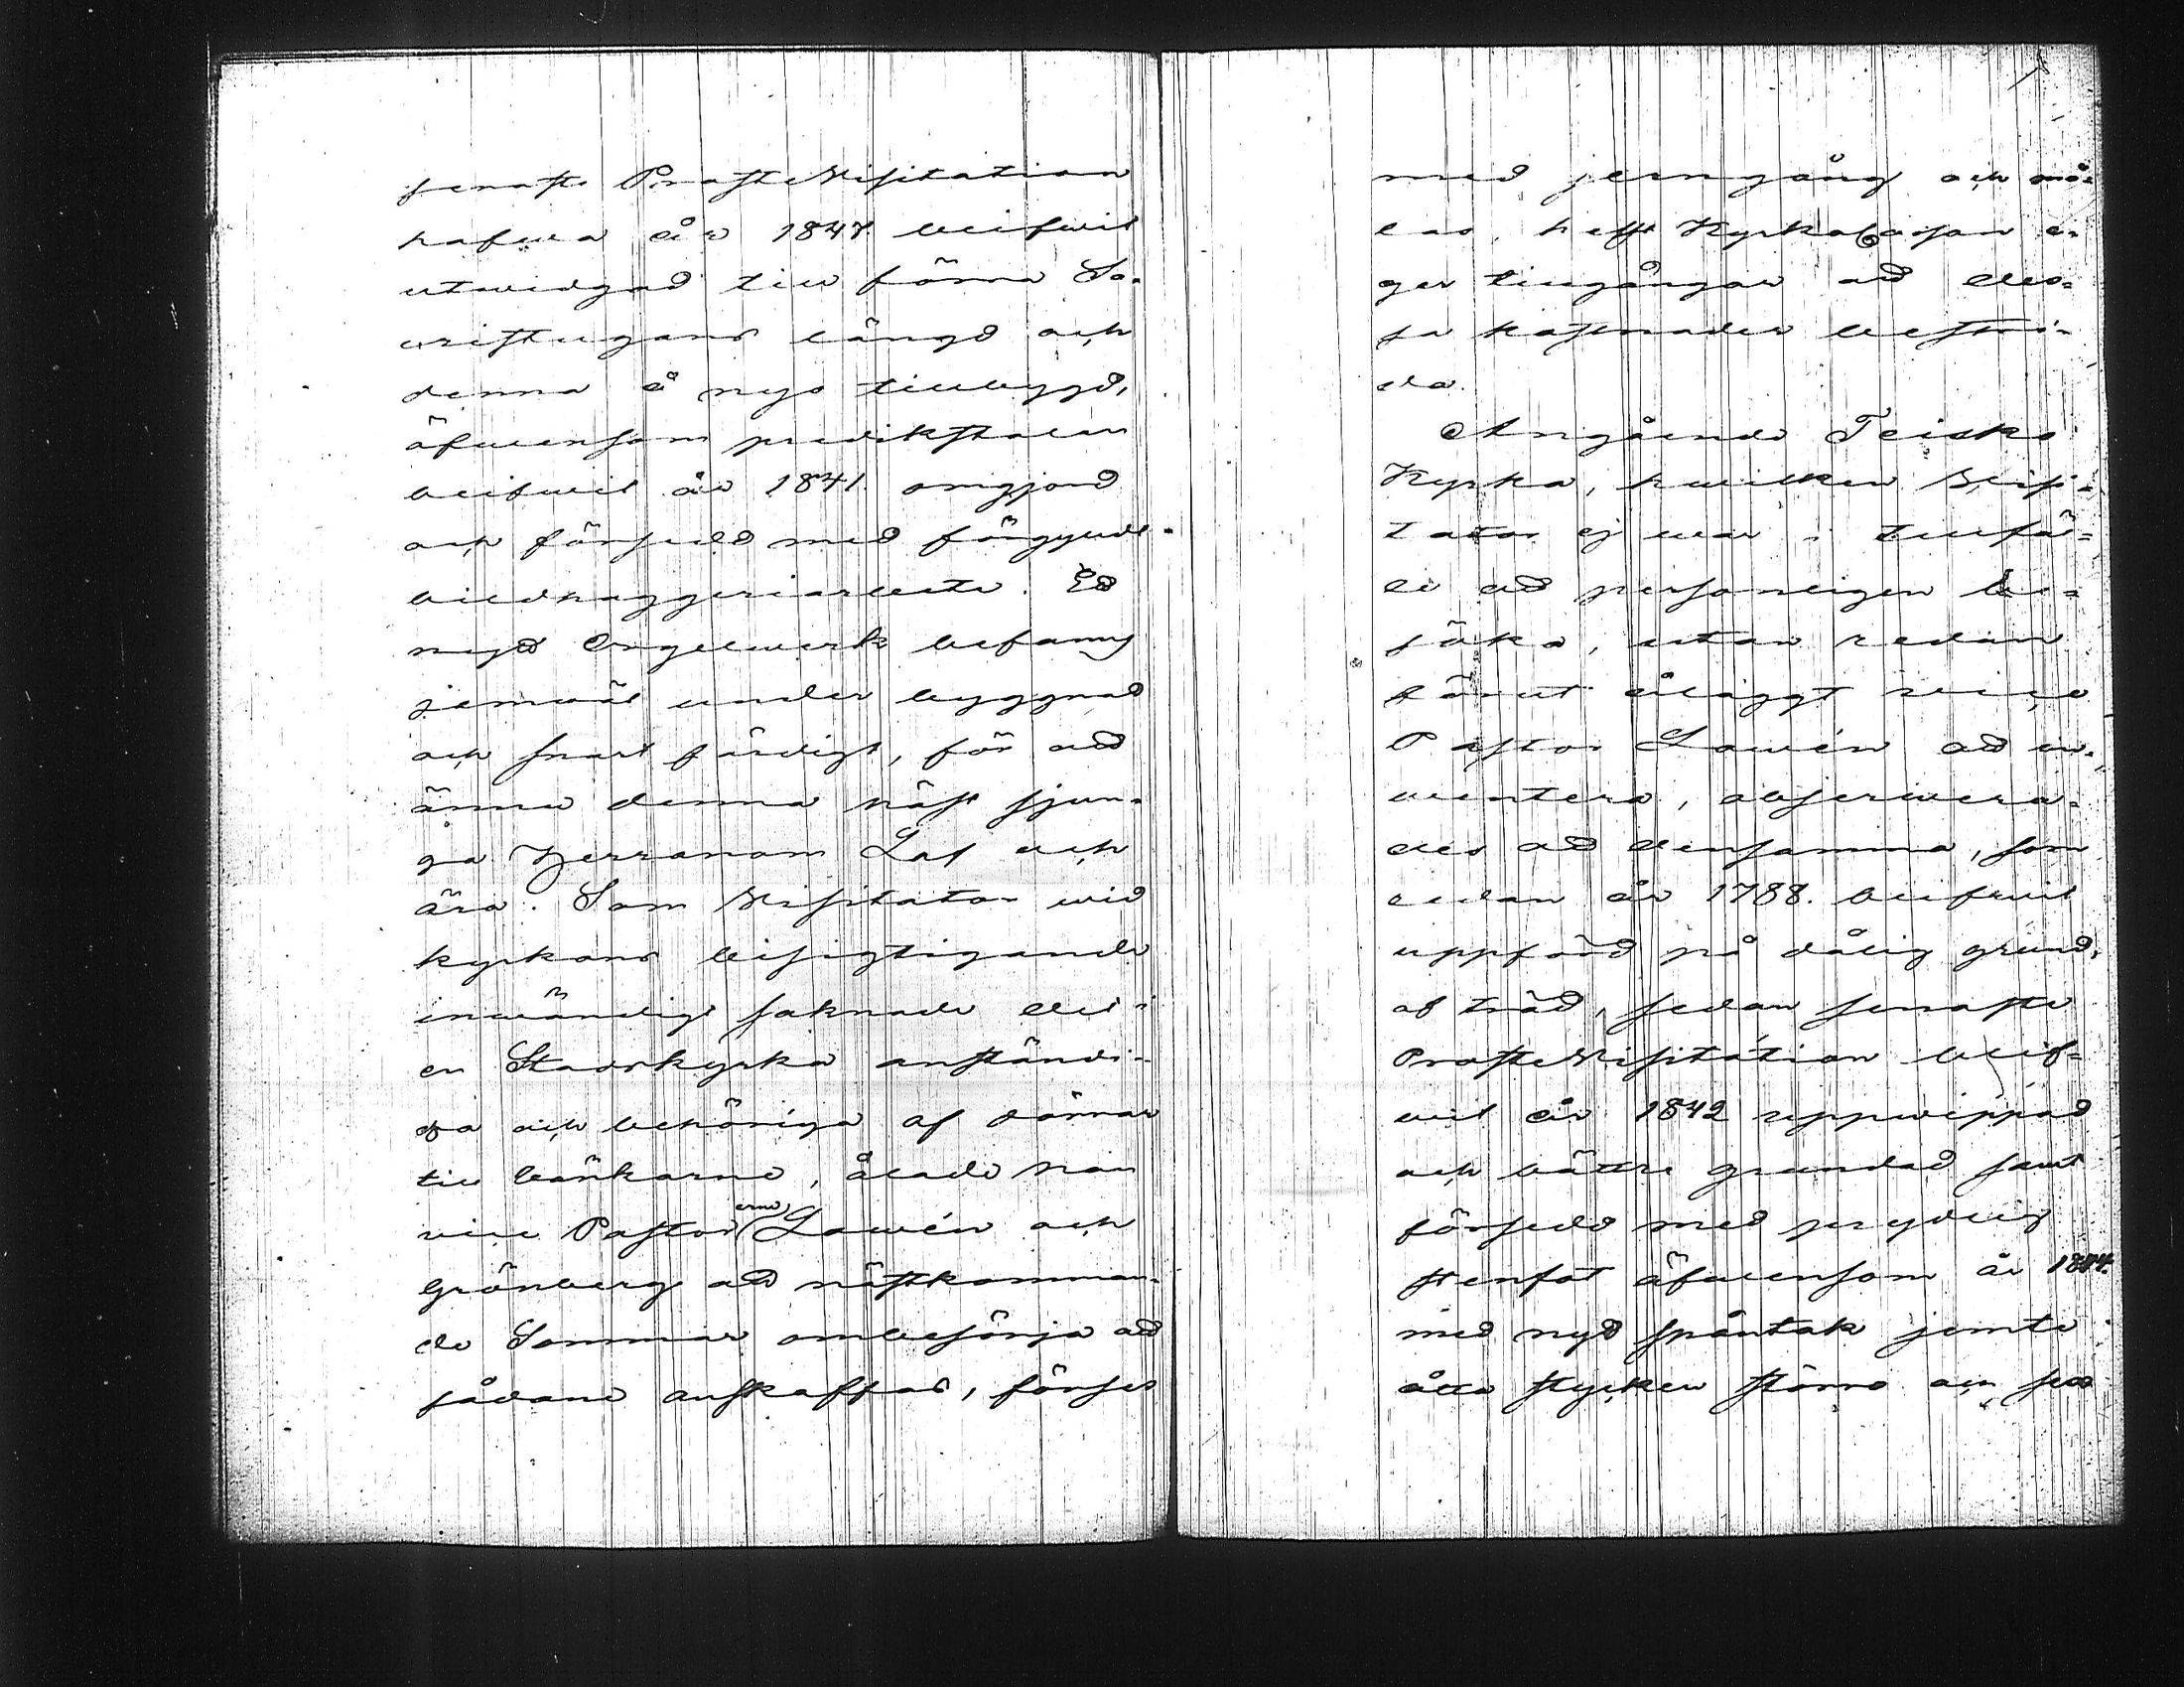 senaste ProsteVisitation
hafwa år 1847. blifwit
utwidgad till förra Sa-
cristigans längd och
denna å nyo tillbyggd,
äfwensom predikstolen
blifwit år 1841 omgjord
och försedd med förgyldt
bildhuggeriarbete. Ett
nytt Orgelwerk befanns
jemwäl under byggnad
och snart färdigt, för att
ännu denna höst sjun-
ga Herranom Lof och
ära. Som Visitator wid
kyrkans besigtigande
inwändigt saknade det i
en Stadskyrka anständi-
ga och behöriga af dörrar
till bänkarne, ålade han
vice Pastor erne Lawén och
Grönberg att nästkomman-
de Sommar ombesörja att
sådane anskaffas, förses
med jerngång och må-
las, helst Kyrkokassan ä-
ger tillgångar att des-
sa kostnader bestri-
da.
Angående Teisko
Kyrka, hwilken Visi-
tator ej war i tillfäl-
le att personligen be-
söka, utan redan
förut ålaggt vice
Pastor Lawén att in-
ventera, observera-
des att densamma, som
redan år 1788. blifwit
uppförd på dålig grund,
af träd, sedan senaste
ProsteVisitation blif-
wit år 1842 uppwippad
och bättre grundad samt
försedd med prydlig
stenfot äfwensom år 1844.
med nytt spåntak jemte
åtta stycken större och sex